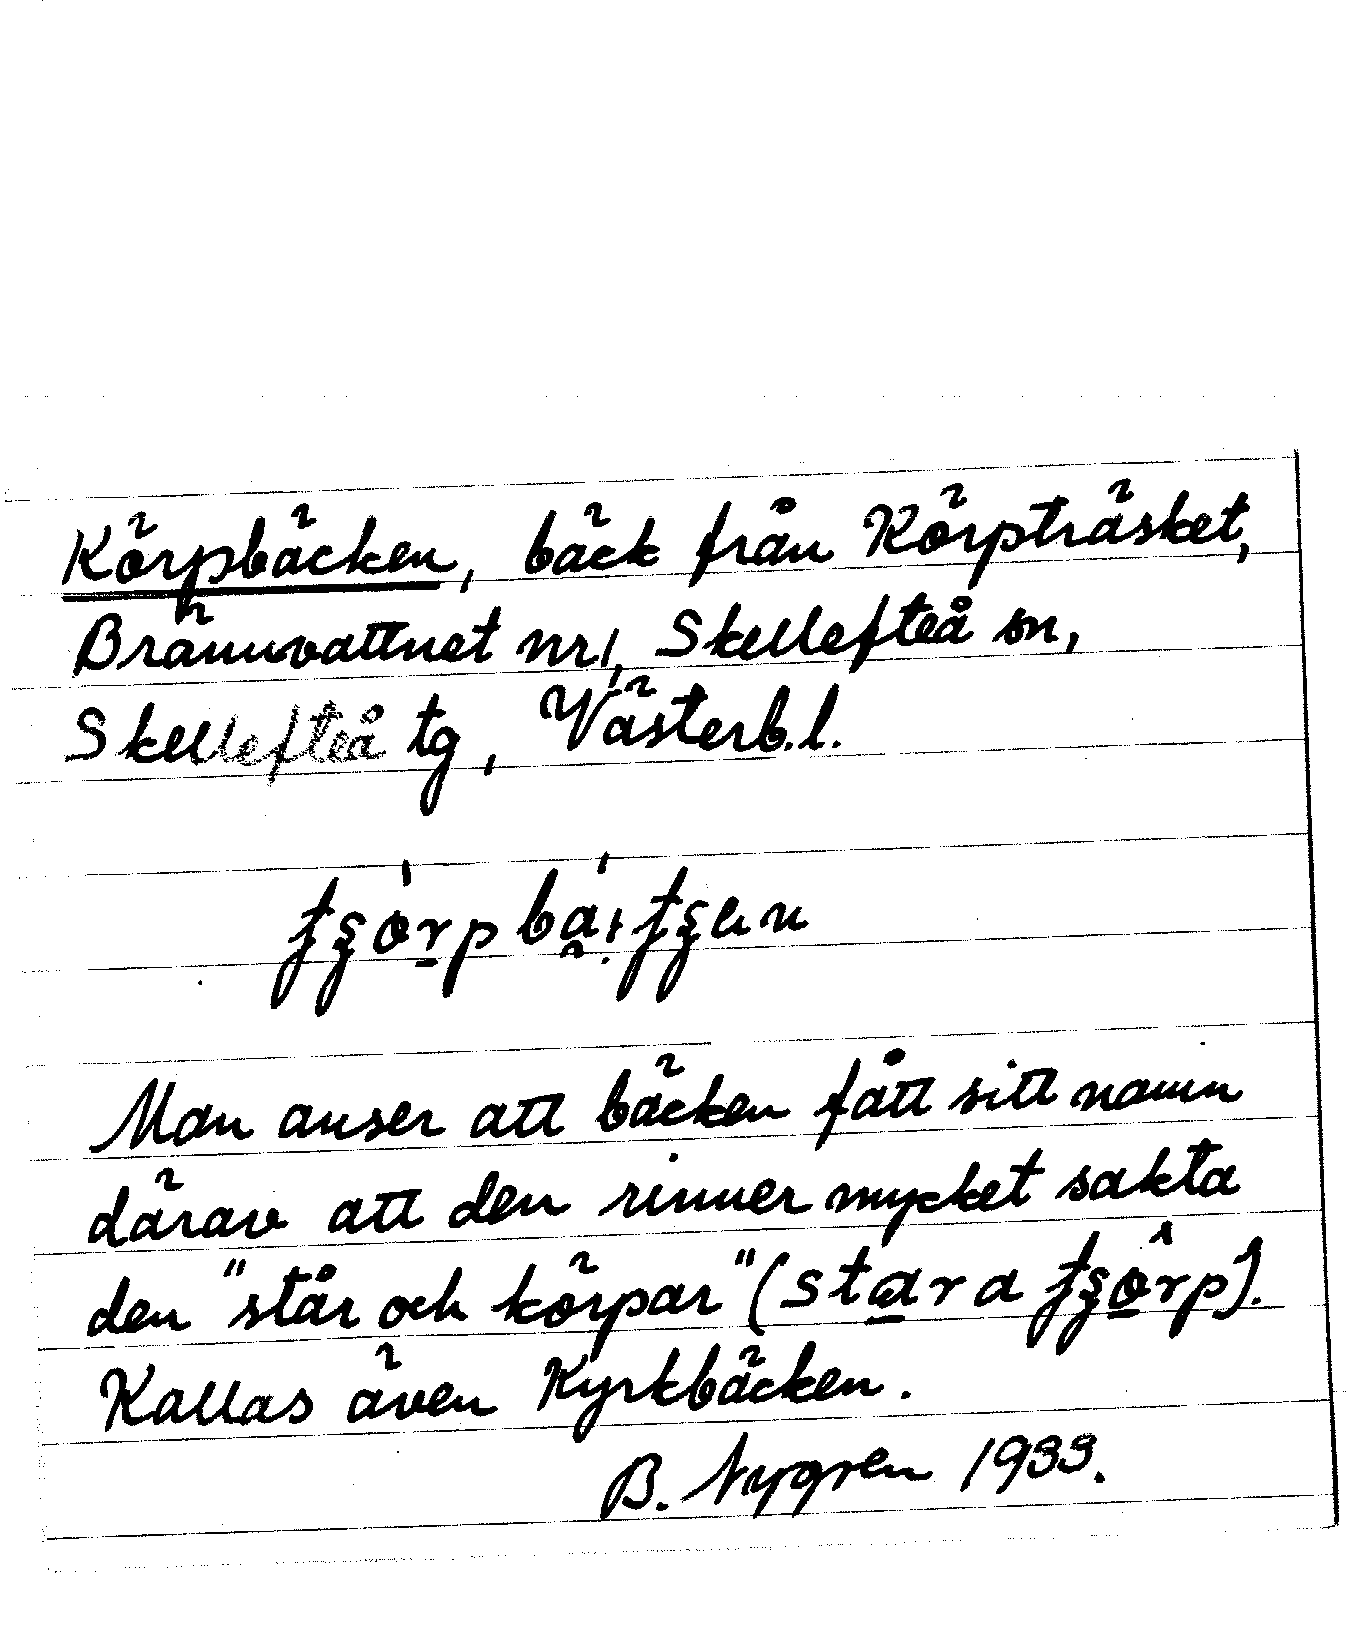 Körpbäcken, bäck från Körpträsket,
Brännvattnet nr 1, Skellefteå sn,
Skellefteå tg, Västerb.l.
Man anser att bäcken fått sitt namn
därav att den rinner mycket sakta
den "står och körpar"
Kallas även Kyrkbäcken.
B. Nygren 1933.